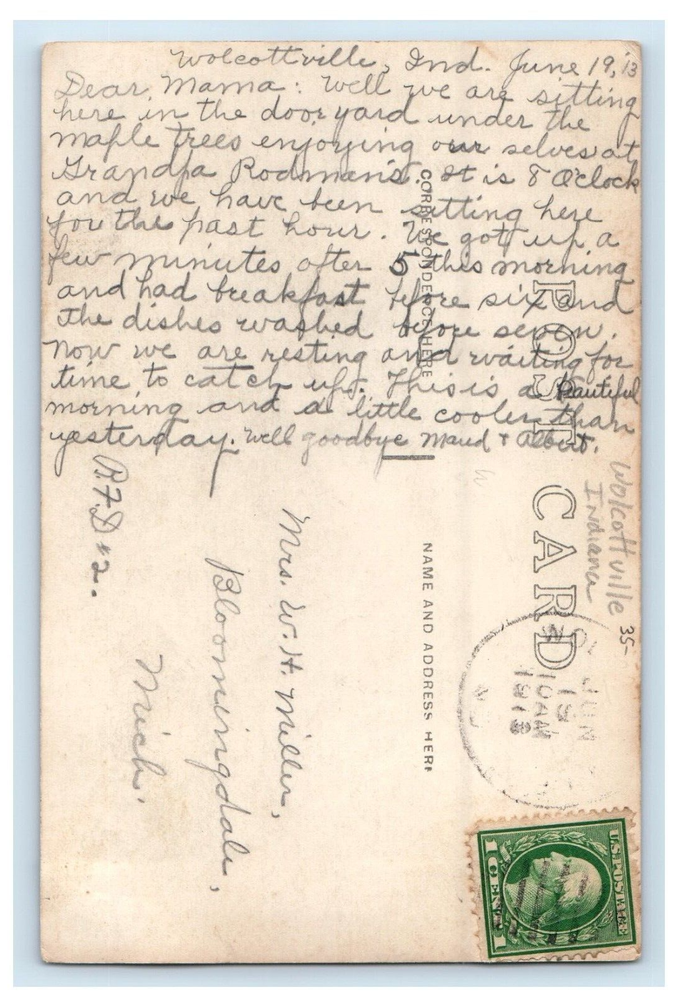 Wolcottville, Ind. June 19, 13
Dear Mama: Well we are sitting
here in the dooryard under the
maple trees enjoying our selves at
Grandpa Rodman's. It is 8 O'clock
and we have been sitting here
for the past hour. We got up a
few minutes after 5 this morning
and had breakfast before six and
the dishes washed before seven.
Now we are resting and waiting for
time to catch up. This is a beautiful
morning and a little cooler than
yesterday. Well goodbye Maud & Albert.
CORRESPONDENCE HERE
POST CARD
NAME AND ADDRESS HERE
Mrs. W. H. Miller,
Bloomingdale,
Mich.
R.F.D #2.
Wolcottville
Indiana
35-
JUN
19
10 AM
1913
IND
U.S. POSTAGE
1 CENT 1